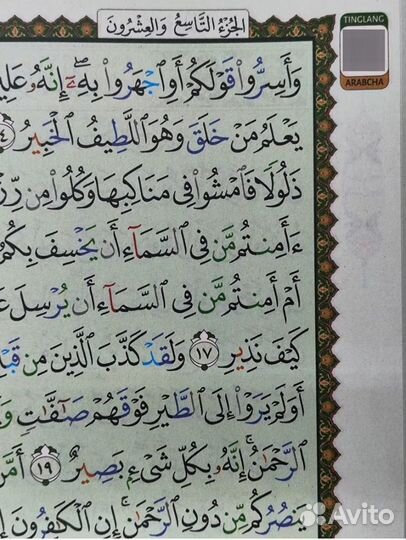 الجُزْءُ التَّاسِعُ وَالعِشْرُونَ
TINGLANG
ARABCHA
وَأَسِرُّوا۟ قَوْلَكُمْ أَوِ ٱجْهَرُوا۟ بِهِۦٓ ۖ إِنَّهُۥ
يَعْلَمُ مَنْ خَلَقَ وَهُوَ ٱللَّطِيفُ ٱلْخَبِيرُ
ذَلُولًا فَٱمْشُوا۟ فِى مَنَاكِبِهَا وَكُلُوا۟ مِن
ءَأَمِنتُم مَّن فِى ٱلسَّمَآءِ أَن يَخْسِفَ بِكُمُ
أَمْ أَمِنتُم مَّن فِى ٱلسَّمَآءِ أَن يُرْسِلَ
كَيْفَ نَذِيرِ ١٧ وَلَقَدْ كَذَّبَ ٱلَّذِينَ مِن
أَوَلَمْ يَرَوْا۟ إِلَى ٱلطَّيْرِ فَوْقَهُمْ صَٰٓفَّٰتٍ
ٱلرَّحْمَٰنُ ۚ إِنَّهُۥ بِكُلِّ شَىْءٍۭ بَصِيرٌ ١٩
يَنصُرُكُم مِّن دُونِ ٱلرَّحْمَٰنِ ۚ إِنِ ٱلْكَٰفِرُونَ
Avito